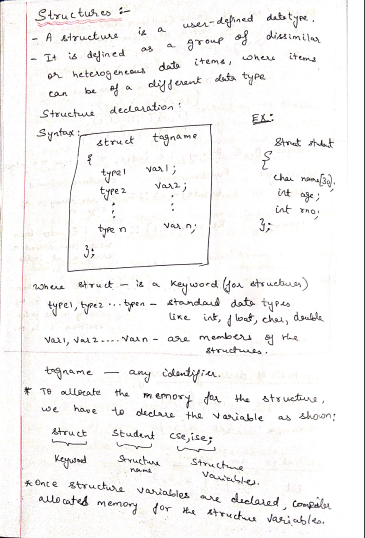 Structures :-
- A structure is a user-defined datatype.
- It is defined as a group of dissimilar
or heterogeneous data items, where items
can be of a different data type
Structure declaration:
Syntax:
struct tagname
{
type1 var1;
type2 var2;
: :
: :
type n var n;
};
Ex:
Struct student
{
char name[30];
int age;
int rno;
};
where struct - is a keyword (for structures)
type1, type2 ... typen - standard data types
like int, float, char, double
var1, var2 .... varn - are members of the
structures.
tagname — any identifier.
* To allocate the memory for the structure,
we have to declare the variable as shown:
struct student cse,ise;
Keyword Structure name Structure variables.
* Once structure variables are declared, compiler
allocated memory for the structure variables.